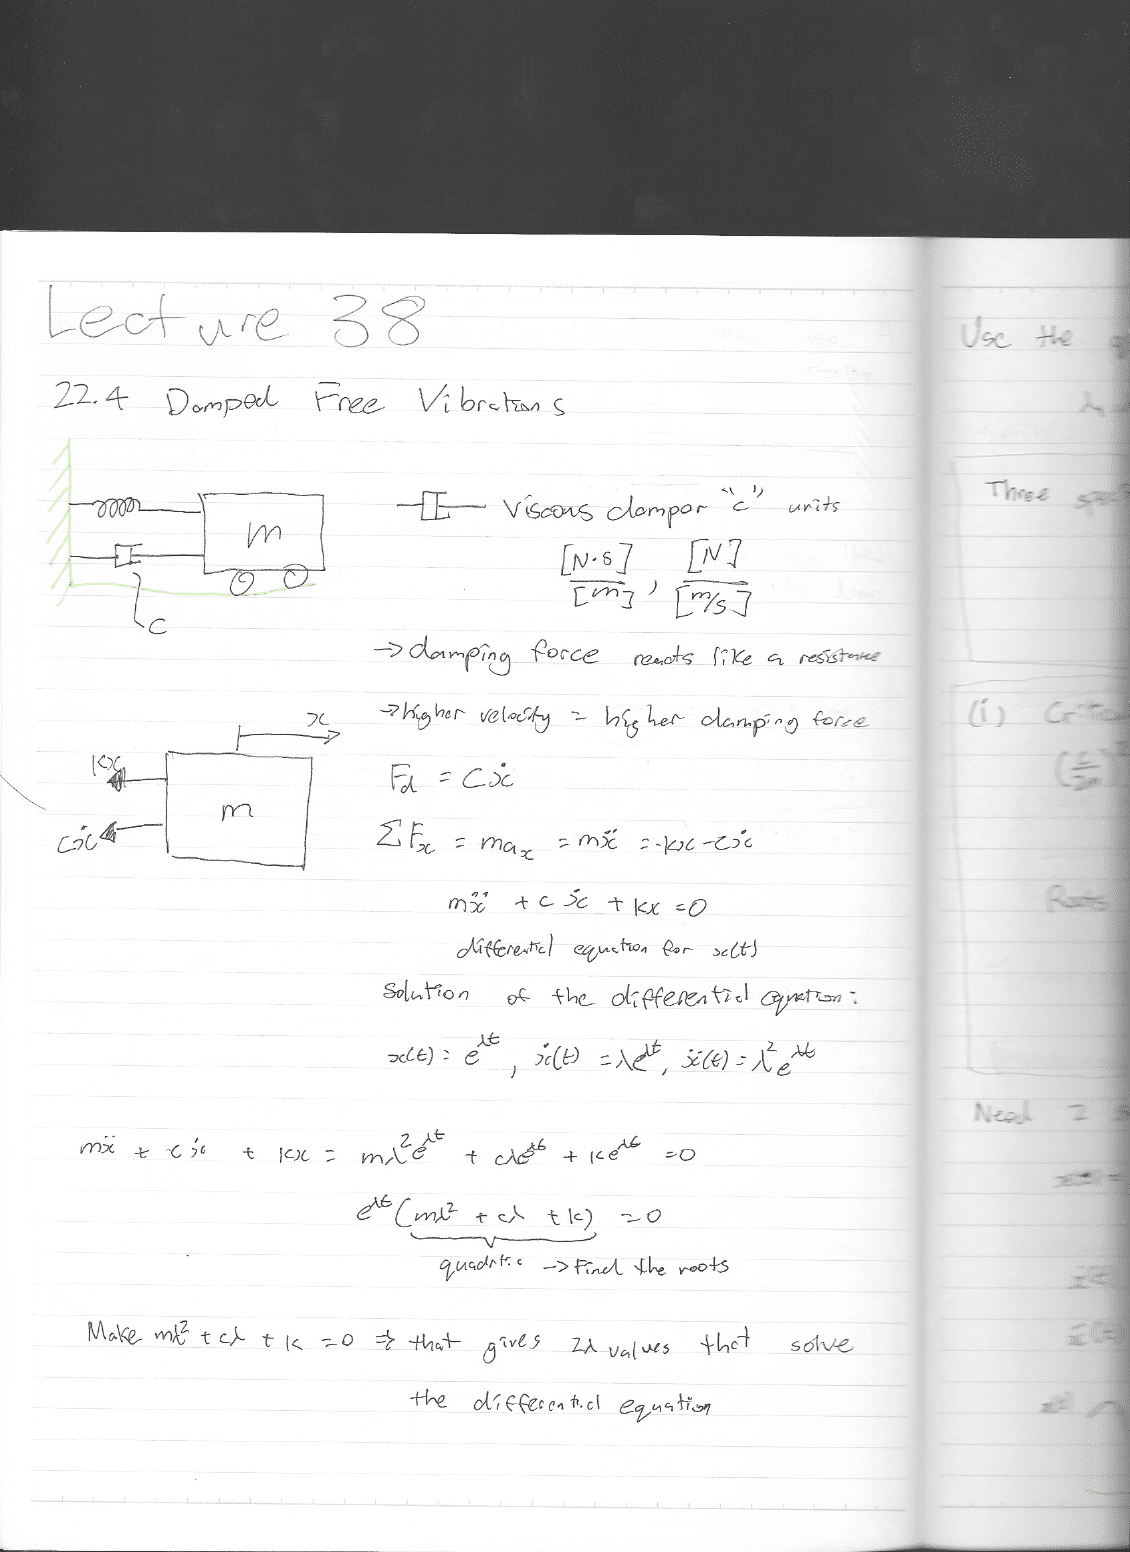 Lecture 38
22.4 Damped Free Vibrations
m
c
viscous dampor "c" units
[N·s]/[m], [N]/[m/s]
→ damping force reacts like a resistance
→ higher velocity = higher damping force
x
kx
m
cẋ
Fd = cẋ
ΣFx = max = mẍ = -kx - cẋ
mẍ + cẋ + kx = 0
differential equation for x(t)
Solution of the differential equation:
x(t) = e^λt, ẋ(t) = λe^λt, ẍ(t) = λ²e^λt
mẍ + cẋ + kx = mλ²e^λt + cλe^λt + ke^λt = 0
e^λt (mλ² + cλ + k) = 0
quadratic → Find the roots
Make mλ² + cλ + k = 0 ⇒ that gives 2λ values that solve
the differential equation
Use the
Three
(i)
Roots
Need 2